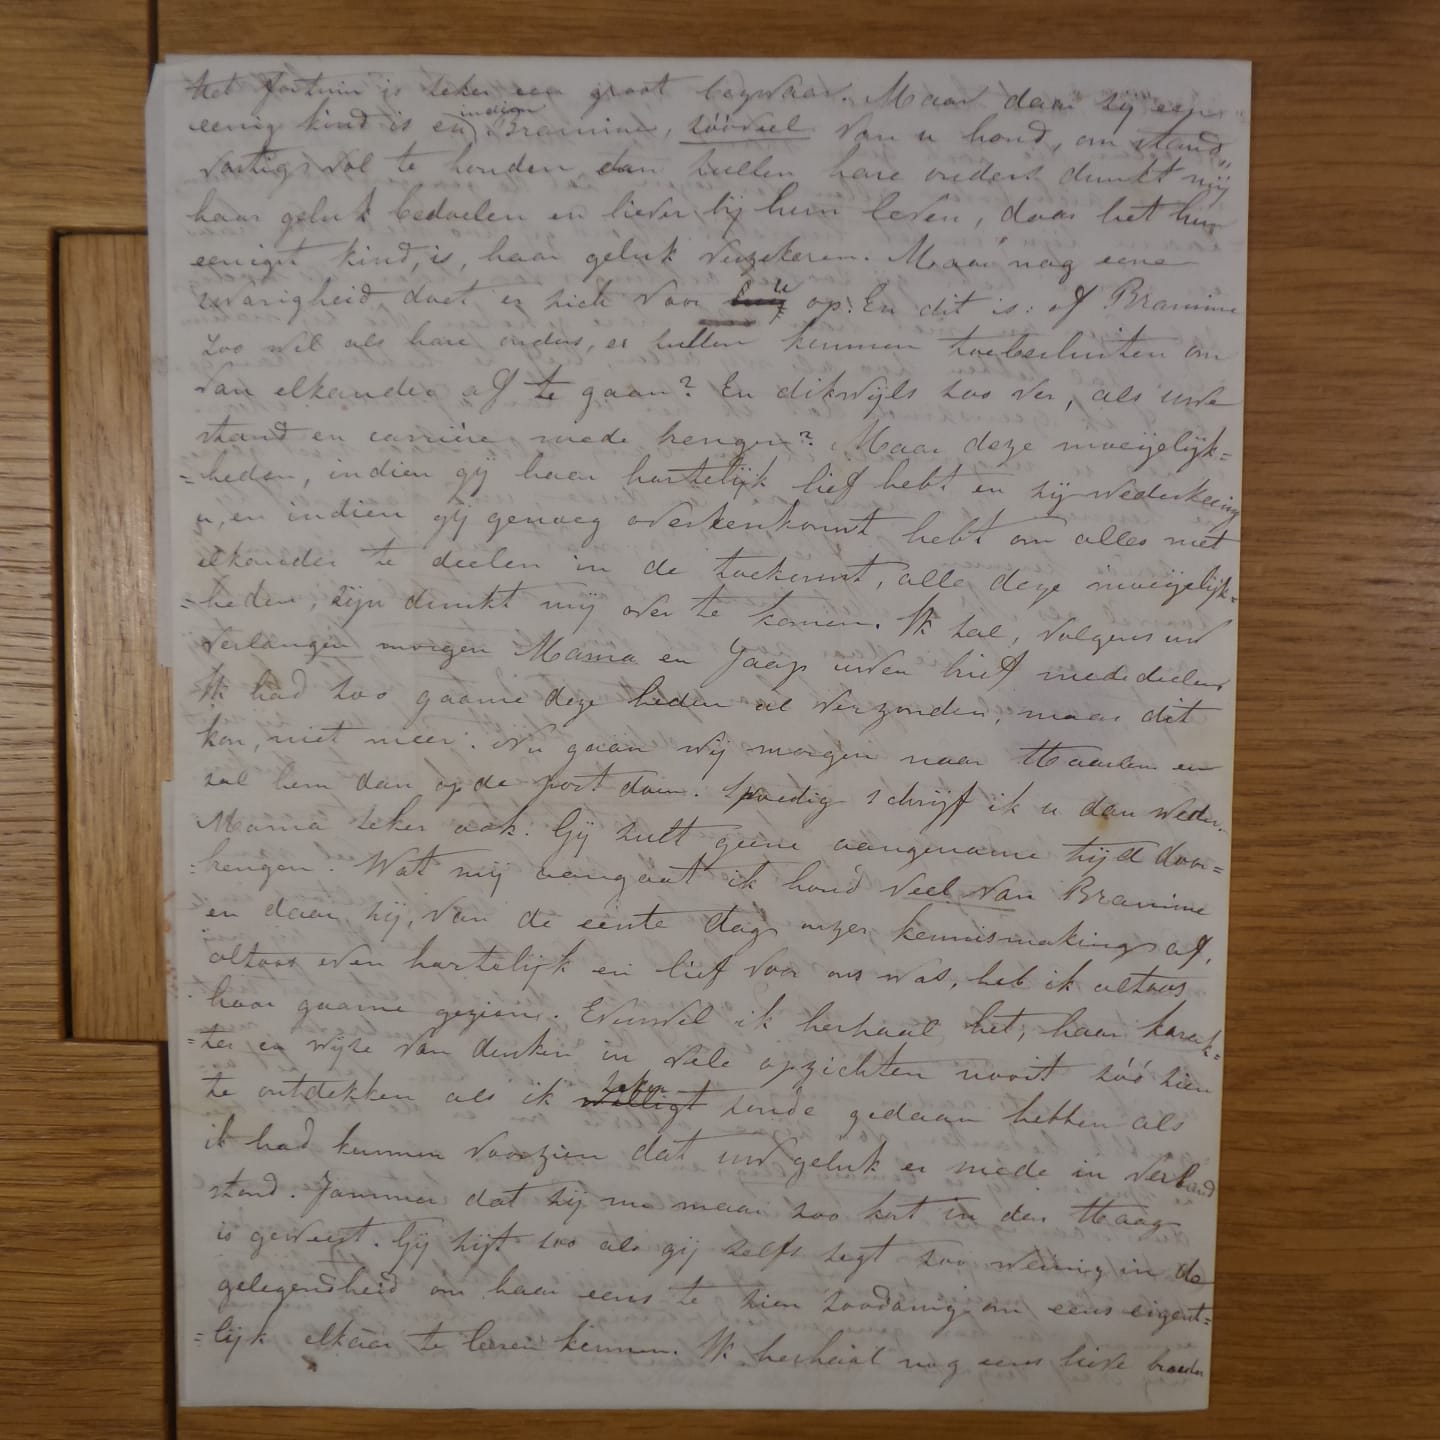 Het fortuin is zeker een groot bezwaar. Maar daar zij een
eenig kind is en indien Bramine, zóóveel van u houd, om stand
vastig vol te houden dan zullen hare ouders dunkt mij
haar geluk bedoelen en liever bij hun leven, daar het hun
eenigst kind, is, haar geluk verzekeren. Maar nog eene
zwarigheid doet er zich voor u op: En dit is: of Bramine
zoo wel als hare ouders, er zullen kunnen toebesluiten om
van elkander af te gaan? En dikwijls zoo ver, als uwe
stand en carrière mede brengen? Maar deze moeijelijk=
=heden, indien gij haar hartelijk lief hebt en zij wederkeerig
u, en indien gij genoeg overeenkomst hebt om alles met
elkander te deelen in de toekomst, alle deze moeijelijk=
=heden, zijn dunkt mij over te komen. Ik zal, volgens uw
verlangen morgen Mama en Jaap uwen brief mededeelen
Ik had zoo gaarne deze heden al verzonden, maar dit
kon, niet meer. Nu gaan wij morgen naar Haarlem en
zal hem dan op de post doen. Spoedig schrijf ik u dan weder.
Mama zeker ook. Gij zult geene aangename tijd door=
=brengen. Wat mij aangaat ik houd veel van Bramine
en daar zij, van de eerste dag onzer kennismaking af,
altoos even hartelijk en lief voor ons was, heb ik altoos
haar gaarne gezien. Evenwel ik herhaal het, haar karak=
=ter en wijze van denken in vele opzichten nooit zóó zien
te ontdekken als ik zeker willigt zoude gedaan hebben als
ik had kunnen voorzien dat uw geluk er mede in verband
stond. Jammer dat zij nu maar zoo kort in den Haag
is geweest. Gij zijt zoo als gij zelfs zegt zoo weinig in de
gelegendheid om haar eens te zien zoodanig om eens eigent=
=lijk elkaar te leeren kennen. Ik herhaal nog eens lieve broeder